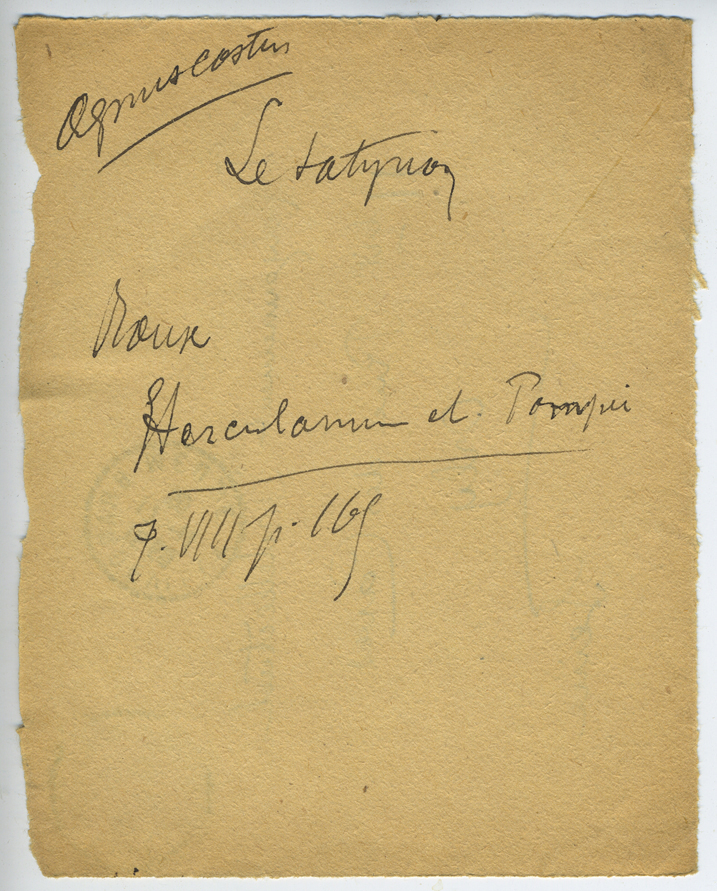 Agnus castus
Le satyrion
Roux
Herculanum et Pompei
T. VIII p. 169